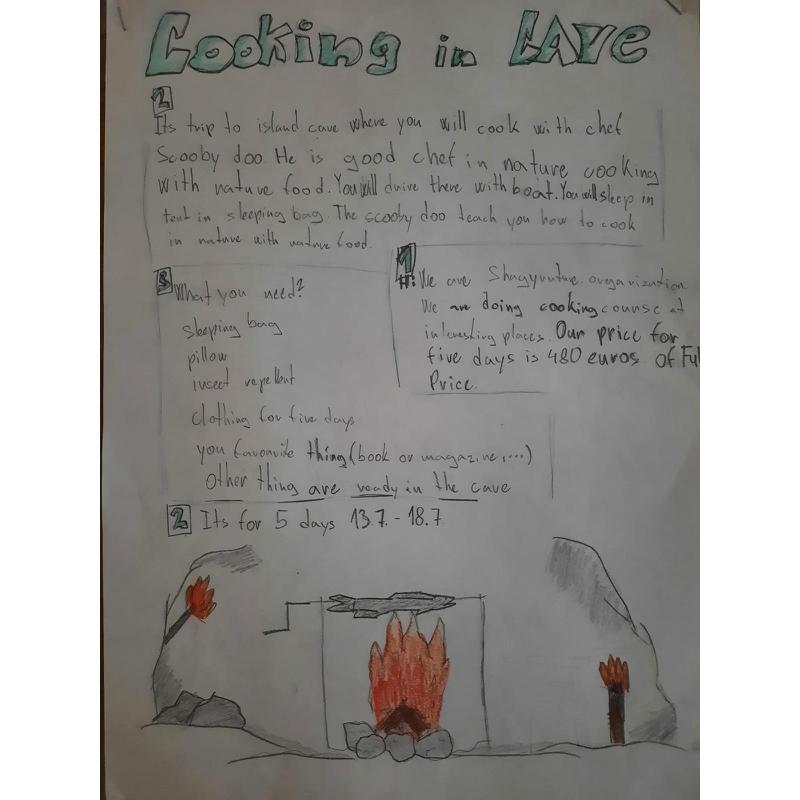 Cooking in CAVE
2
Its trip to island cave where you will cook with chef
Scooby doo He is good chef in nature cooking
with nature food. You will drive there with boat. You will sleep in
tent in sleeping bag. The scooby doo teach you how to cook
in nature with nature food.
1
We are organization
We are doing cooking course at
interesting places. Our price for
five days is 480 euros of Ful
Price.
3 What you need?
sleeping bag
pillow
insect repellent
clothing for five days
you favourite thing (book or magazine,...)
Other thing are ready in the cave
2 Its for 5 days 13.7. - 18.7